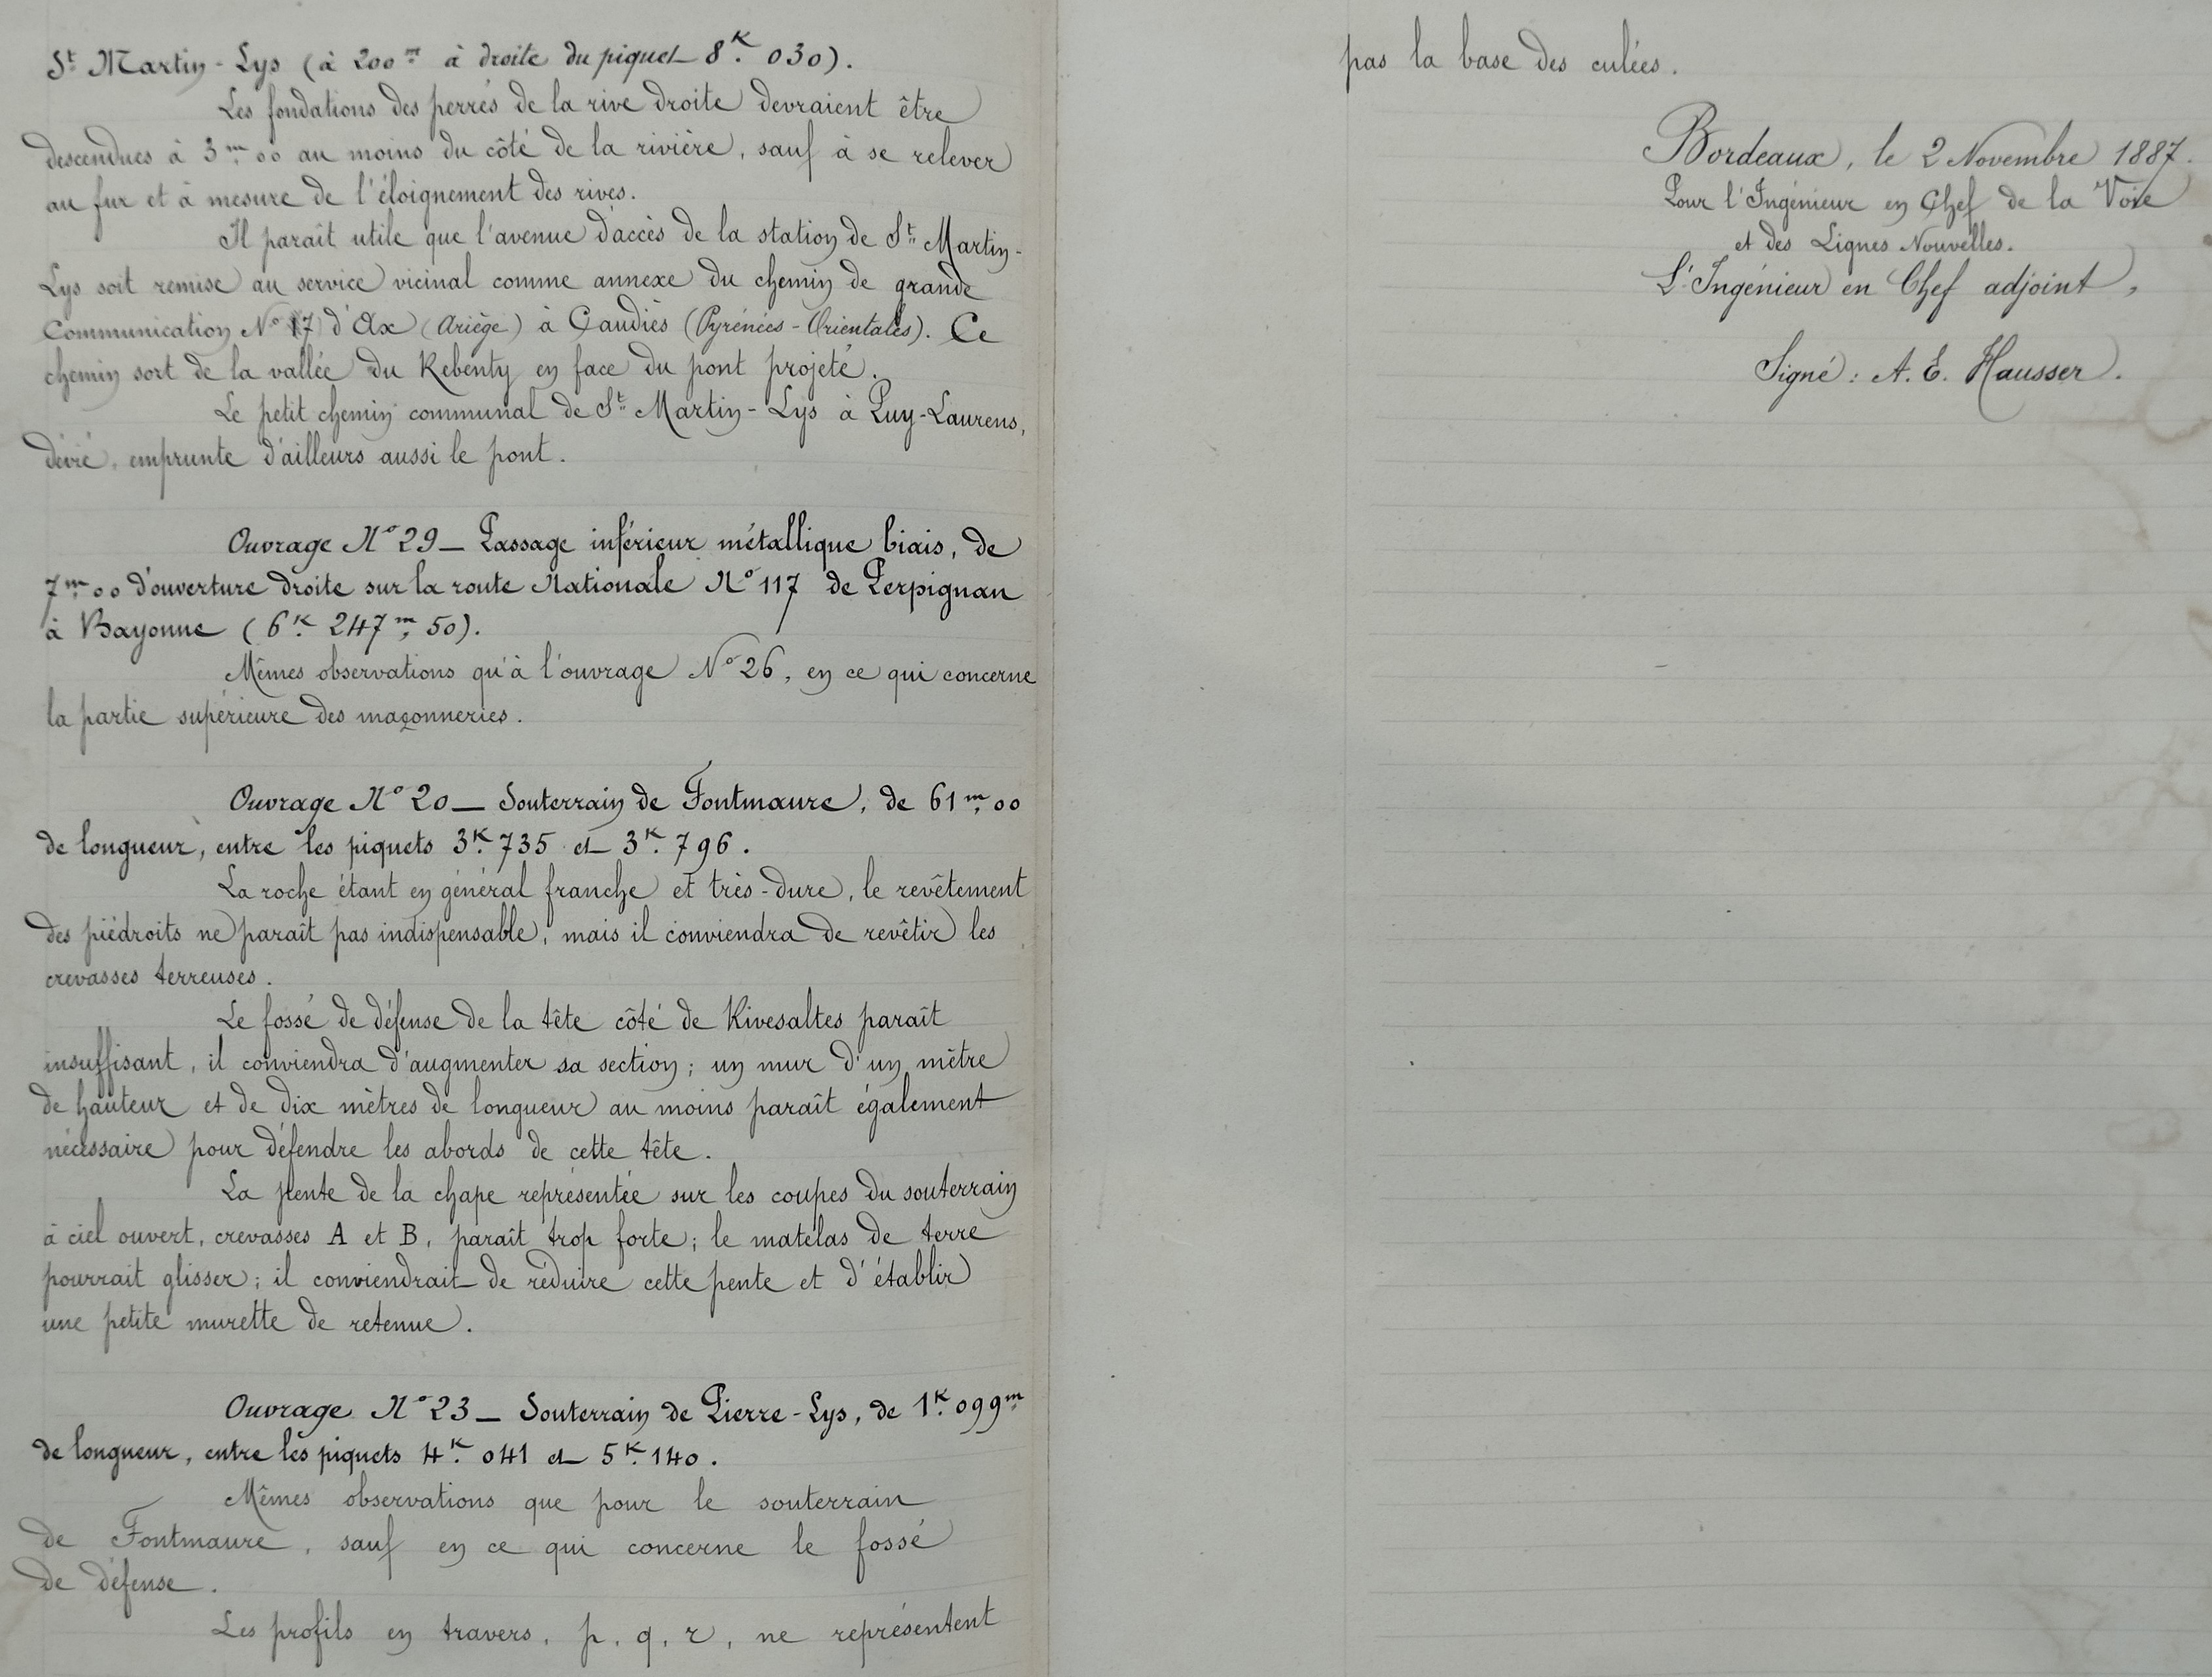 St Martin-Lys (à 200m à droite du piquet 8K. 030).
Les fondations des perrés de la rive droite devraient être
descendues à 3m,00 au moins du côté de la rivière, sauf à se relever
au fur et à mesure de l'éloignement des rives.
Il paraît utile que l'avenue d'accès de la station de St Martin-
Lys soit remise au service vicinal comme annexe du chemin de grande
Communication No 17 d'Ax (Ariège) à Caudiès (Pyrénées-Orientales). Ce
chemin sort de la vallée du Rebenty en face du pont projeté.
Le petit chemin communal de St Martin-Lys à Puy-Laurens,
dévié, emprunte d'ailleurs aussi le pont.
Ouvrage No 29 — Passage inférieur métallique biais, de
7m,00 d'ouverture droite sur la route Nationale No 117 de Perpignan
à Bayonne (6K. 247m, 50).
Mêmes observations qu'à l'ouvrage No 26, en ce qui concerne
la partie supérieure des maçonneries.
Ouvrage No 20 — Souterrain de Fontmaure, de 61m,00
de longueur, entre les piquets 3K. 735 et 3K. 796.
La roche étant en général franche et très-dure, le revêtement
des piédroits ne paraît pas indispensable, mais il conviendra de revêtir les
crevasses terreuses.
Le fossé de défense de la tête côté de Rivesaltes paraît
insuffisant, il conviendra d'augmenter sa section; un mur d'un mètre
de hauteur et de dix mètres de longueur au moins paraît également
nécessaire pour défendre les abords de cette tête.
La pente de la chape représentée sur les coupes du souterrain
à ciel ouvert, crevasses A et B, paraît trop forte; le matelas de terre
pourrait glisser; il conviendrait de réduire cette pente et d'établir
une petite murette de retenue.
Ouvrage No 23 — Souterrain de Pierre-Lys, de 1K. 099m
de longueur, entre les piquets 4K. 041 et 5K. 140.
Mêmes observations que pour le souterrain
de Fontmaure, sauf en ce qui concerne le fossé
de défense.
Les profils en travers, p, q, r, ne représentent
pas la base des culées.
Bordeaux, le 2 Novembre 1887.
Pour l'Ingénieur en Chef de la Voie
et des Lignes Nouvelles.
L'Ingénieur en Chef adjoint,
Signé : A. E. Hausser.